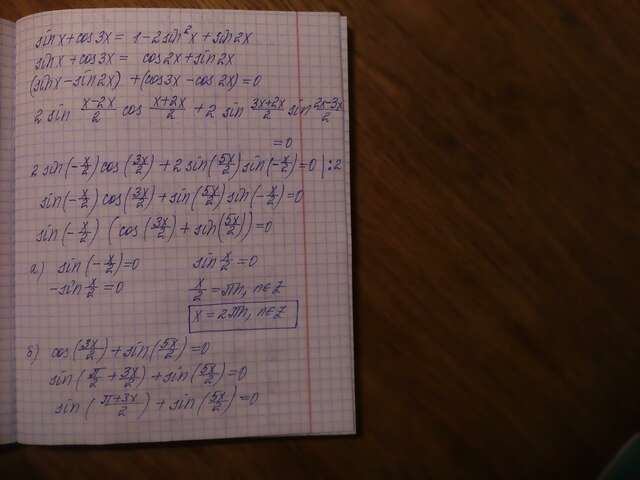 sin x + cos 3x = 1 - 2 sin²x + sin 2x
sin x + cos 3x = cos 2x + sin 2x
(sin x - sin 2x) + (cos 3x - cos 2x) = 0
2 sin (x-2x)/2 cos (x+2x)/2 + 2 sin (3x+2x)/2 sin (2x-3x)/2
= 0
2 sin(-x/2) cos(3x/2) + 2 sin(5x/2) sin(-x/2) = 0 |:2
sin(-x/2) cos(3x/2) + sin(5x/2) sin(-x/2) = 0
sin(-x/2) (cos(3x/2) + sin(5x/2)) = 0
а) sin(-x/2) = 0 sin x/2 = 0
-sin x/2 = 0 x/2 = πn, n∈Z
x = 2πn, n∈Z
б) cos(3x/2) + sin(5x/2) = 0
sin(π/2 + 3x/2) + sin(5x/2) = 0
sin((π+3x)/2) + sin(5x/2) = 0